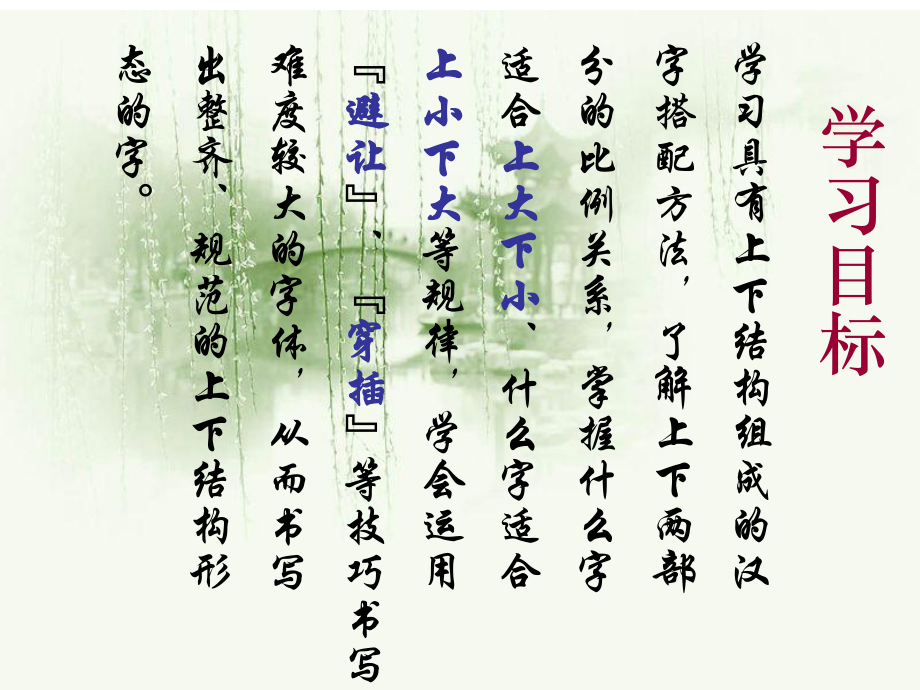 学习目标
学习具有上下结构组成的汉
字搭配方法，了解上下两部
分的比例关系，掌握什么字
适合上大下小、什么字适合
上小下大等规律，学会运用
『避让』、『穿插』等技巧书写
难度较大的字体，从而书写
出整齐、规范的上下结构形
态的字。